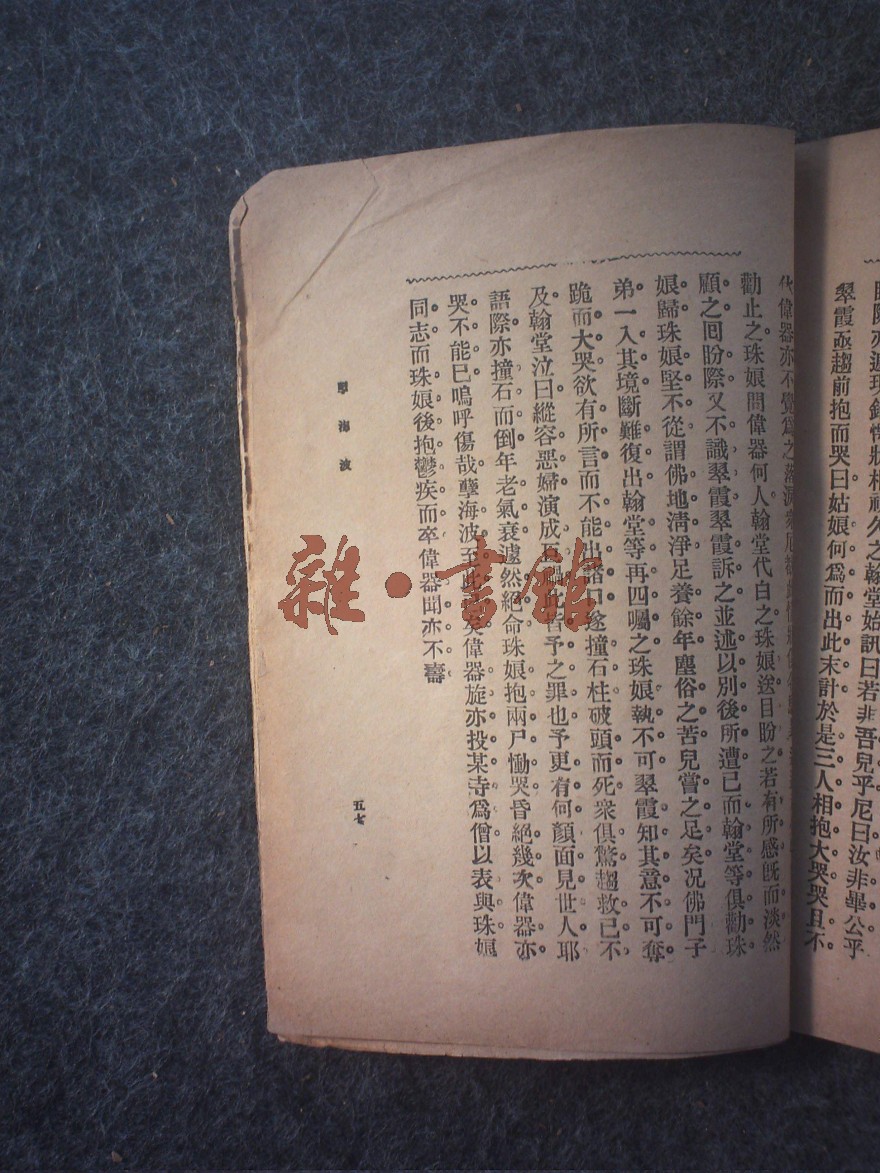 翠霞亟趨前抱而哭曰姑娘何爲而出此末計於是三人相抱大哭哭且不
偉器亦不覺爲之落淚
勸止之珠娘問偉器何人翰堂代白之珠娘送目盼之若有所感旣而淡然
顧之囘盼際又不識翠霞翠霞訴之並述以別後所遭已而翰堂等俱勸珠
娘歸珠娘堅不從謂佛地淸淨足養餘年塵俗之苦兒嘗之足矣况佛門子
弟一入其境斷難復出翰堂等再四囑之珠娘執不可翠霞知其意不可奪
跪而大哭欲有所言而不能出諸口遂撞石柱破頭而死衆俱驚趨救已不
及翰堂泣曰縱容惡婦演成 皆予之罪也予更有何顏面見世人耶
語際亦撞石而倒年老氣衰遽然絕命珠娘抱兩尸慟哭昏絕幾次偉器亦
哭不能巳嗚呼傷哉孽海波至 矣偉器旋亦投某寺爲僧以表與珠娘
同志而珠娘後抱鬱疾而卒偉器聞亦不壽
孽海波
五七
雜·書館